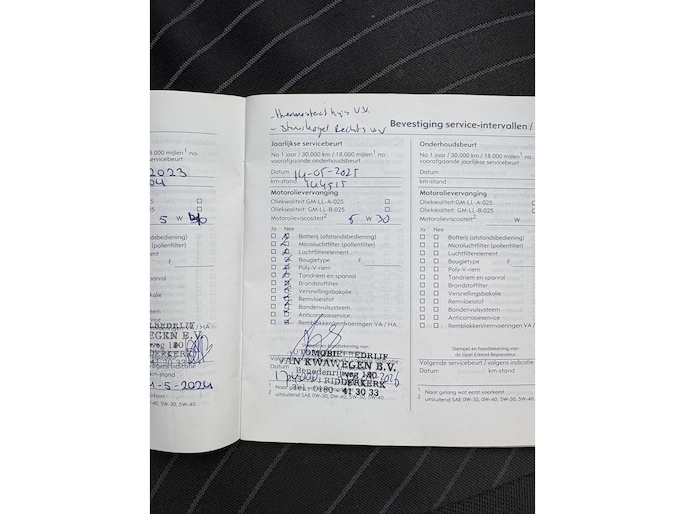 - thermostaathuis v.v.
- Stuurkogel Rechts v.v
Bevestiging service-intervallen /
Jaarlijkse servicebeurt
Na 1 jaar / 30.000 km / 18.000 mijlen¹ na
voorafgaande onderhoudsbeurt
Datum 14-05-2025
km-stand 144515
Motorolievervanging
Oliekwaliteit GM-LL-A-025
Oliekwaliteit GM-LL-B-025
Motorolieviscositeit² 5 W 30
Ja Nee
Batterij (afstandsbediening)
Microluchtfilter (pollenfilter)
Luchtfilterelement
Bougietype F
Poly-V-riem
Tandriem en spanrol
Brandstoffilter
Versnellingsbakolie
Remvloeistof
Bandenvulsysteem
Anticorrosieservice
Remblokken/remvoeringen VA / HA
Stempel en handtekening van
AUTOMOBIELBEDRIJF
VAN KWAWEGEN B.V.
Benedenrijweg 140
RIDDERKERK
Tel. 0180 - 41 30 33
Volgende
Datum
¹ Naar
² uitsluitend SAE 0W-30, 0W-40, 5W-30, 5W-40.
Onderhoudsbeurt
Na 1 jaar / 30.000 km / 18.000 mijlen¹ na
voorafgaande onderhoudsbeurt
Datum
km-stand
Motorolievervanging
Oliekwaliteit GM-LL-A-025
Oliekwaliteit GM-LL-B-025
Motorolieviscositeit² W
Ja Nee
Batterij (afstandsbediening)
Microluchtfilter (pollenfilter)
Luchtfilterelement
Bougietype F
Poly-V-riem
Tandriem en spanrol
Brandstoffilter
Versnellingsbakolie
Remvloeistof
Bandenvulsysteem
Anticorrosieservice
Remblokken/remvoeringen VA /
Stempel en handtekening van
de Opel Erkend Reparateur.
Volgende servicebeurt / volgens indicatie
Datum km-stand
¹ Naar gelang wat eerst voorkomt.
² uitsluitend SAE 0W-30, 0W-40, 5W-30, 5W-40.
18.000 mijlen¹ na
servicebeurt
2023
04
5 W
afstandsbediening)
(pollenfilter)
element
spanrol
bakolie
systeem
service
voeringen VA / HA
BEDRIJF
WEGEN B.V.
weg 140
DDERKERK
41 30 33
indicatie
-5-2024
5W-30, 5W-40.